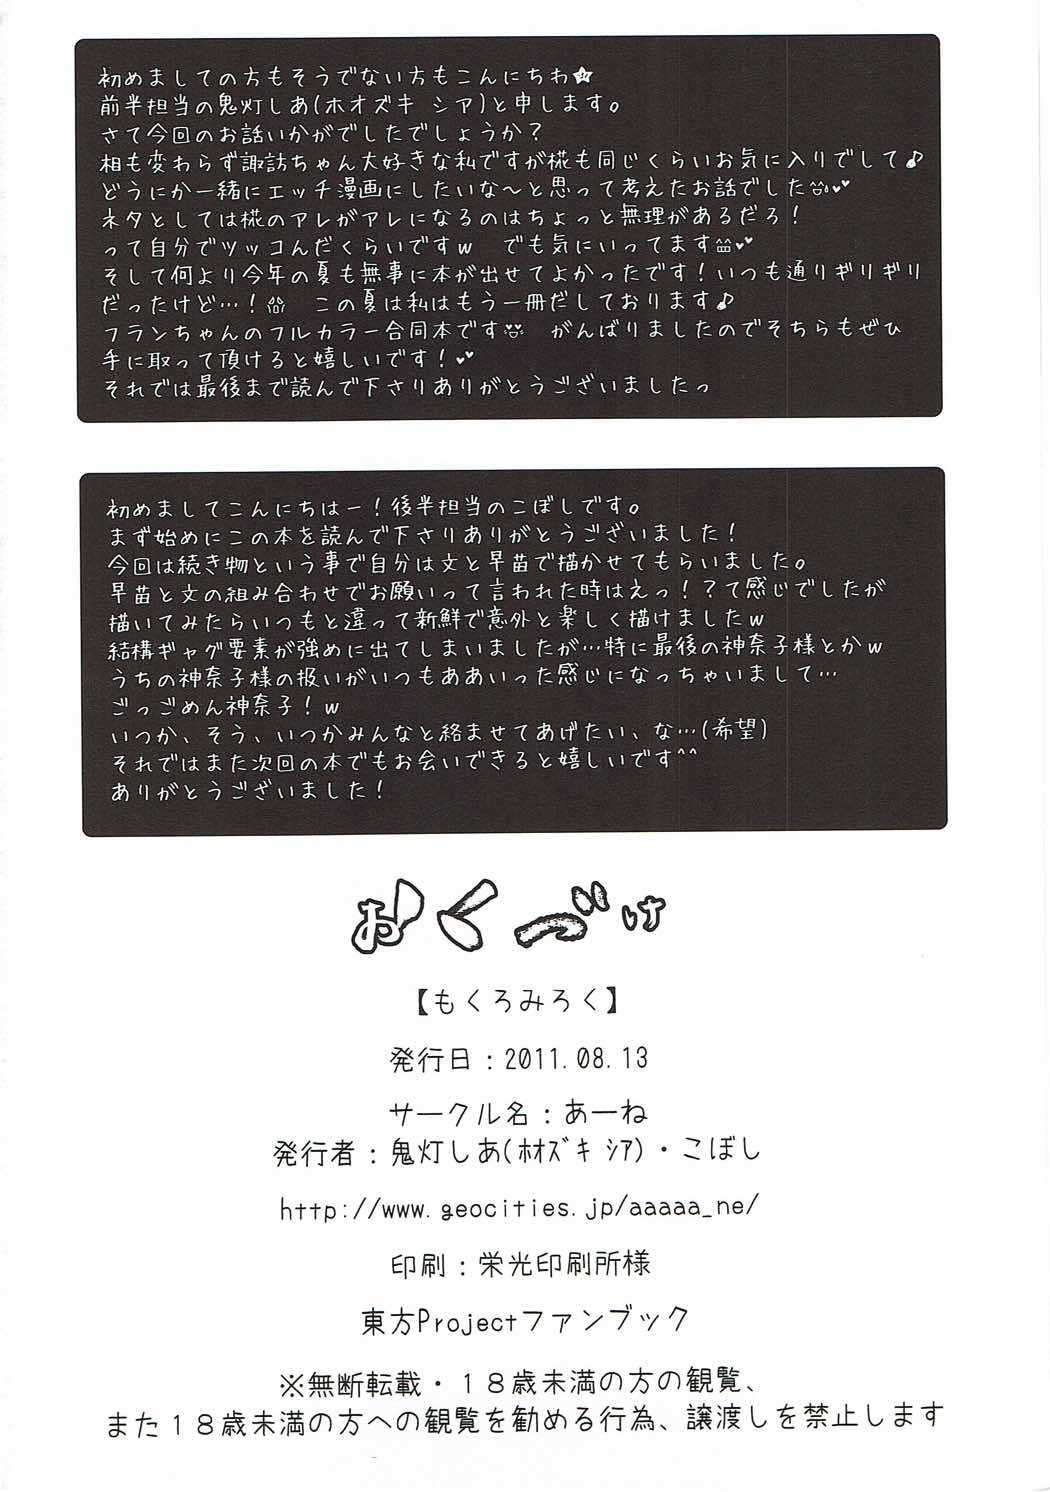 初めましての方もそうでない方もこんにちわ☆
前半担当の鬼灯しあ(ホオズキ シア)と申します。
さて今回のお話いかがでしたでしょうか?
相も変わらず諏訪ちゃん大好きな私ですが椛も同じくらいお気に入りでして♪
どうにか一緒にエッチ漫画にしたいな～と思って考えたお話でした
ネタとしては椛のアレがアレになるのはちょっと無理があるだろ!
って自分でツッコんだくらいですw　でも気にいってます
そして何より今年の夏も無事に本が出せてよかったです!いつも通りギリギリ
だったけど…!　この夏は私はもう一冊だしております♪
フランちゃんのフルカラー合同本です　がんばりましたのでそちらもぜひ
手に取って頂けると嬉しいです!
それでは最後まで読んで下さりありがとうございましたっ
初めましてこんにちはー!後半担当のこぼしです。
まず始めにこの本を読んで下さりありがとうございました!
今回は続き物という事で自分は文と早苗で描かせてもらいました。
早苗と文の組み合わせでお願いって言われた時はえっ!?て感じでしたが
描いてみたらいつもと違って新鮮で意外と楽しく描けましたw
結構ギャグ要素が強めに出てしまいましたが…特に最後の神奈子様とかw
うちの神奈子様の扱いがいつもああいった感じになっちゃいまして…
ごっごめん神奈子!w
いつか、そう、いつかみんなと絡ませてあげたい、な…(希望)
それではまた次回の本でもお会いできると嬉しいです^^
ありがとうございました!
おくづけ
【もくろみろく】
発行日:2011.08.13
サークル名:あーね
発行者:鬼灯しあ(ﾎｵｽﾞｷ ｼｱ)・こぼし
http://www.geocities.jp/aaaaa_ne/
印刷:栄光印刷所様
東方Projectファンブック
※無断転載・18歳未満の方の観覧、
また18歳未満の方への観覧を勧める行為、譲渡しを禁止します